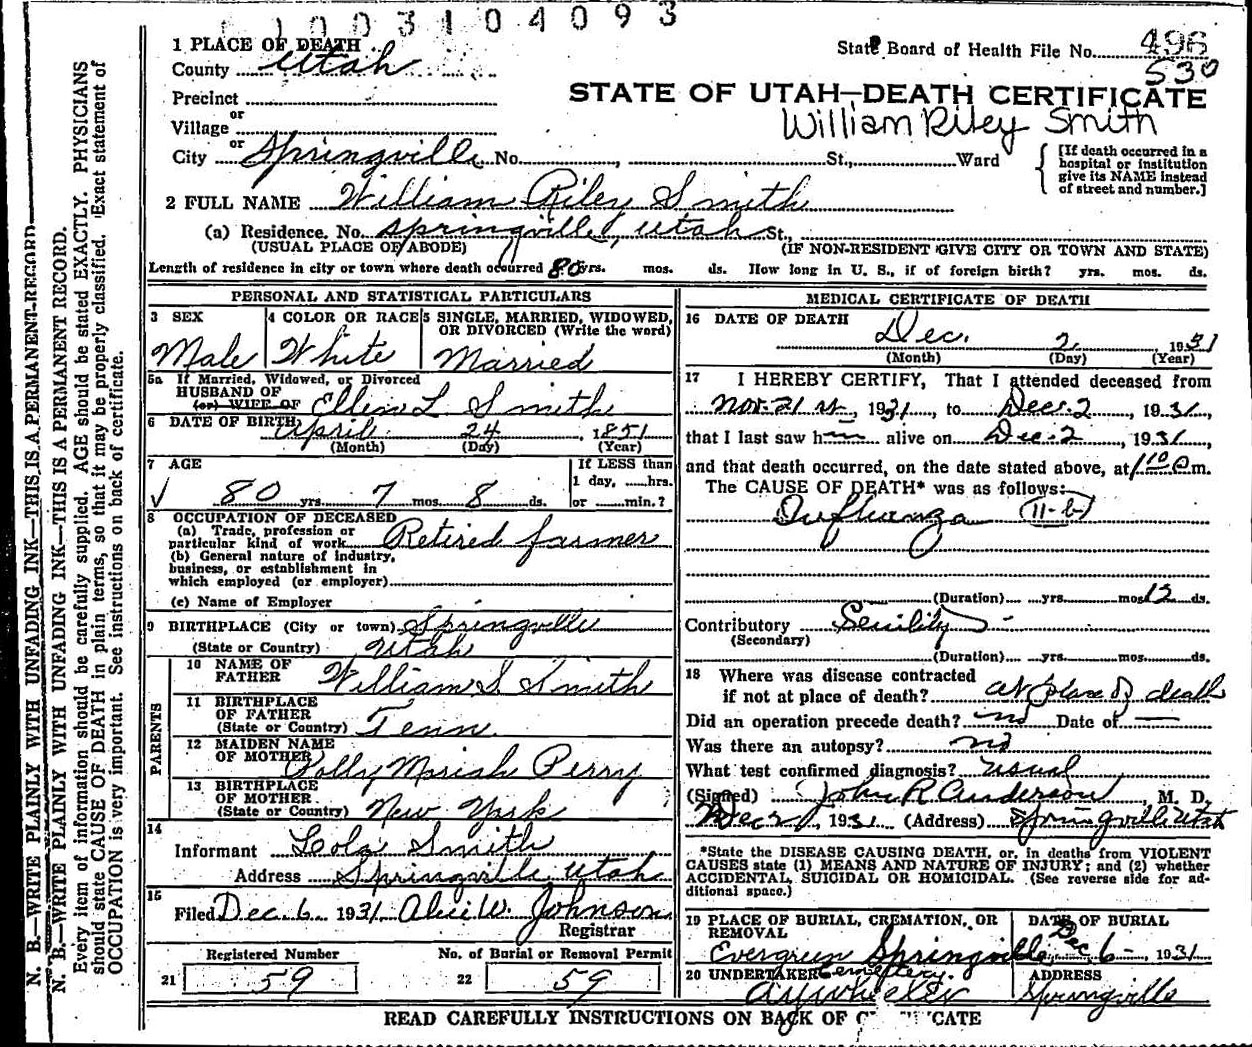 1003104093
1 PLACE OF DEATH
County Utah
State Board of Health File No. 496
530
Precinct
or
Village
STATE OF UTAH—DEATH CERTIFICATE
William Riley Smith
or
City Springville No. , St., Ward
[If death occurred in a hospital or institution give its NAME instead of street and number.]
2 FULL NAME William Riley Smith
(a) Residence. No. Springville, Utah St.,
(USUAL PLACE OF ABODE) (IF NON-RESIDENT GIVE CITY OR TOWN AND STATE)
Length of residence in city or town where death occurred 80 yrs. mos. ds. How long in U. S., if of foreign birth? yrs. mos. ds.
PERSONAL AND STATISTICAL PARTICULARS
3 SEX
Male
4 COLOR OR RACE
White
5 SINGLE, MARRIED, WIDOWED,
OR DIVORCED (Write the word)
Married
5a If Married, Widowed, or Divorced
HUSBAND OF
(or) WIFE OF Ellen L Smith
6 DATE OF BIRTH April 24, 1851
(Month) (Day) (Year)
7 AGE
80 yrs. 7 mos. 8 ds.
If LESS than
1 day, hrs.
or min.?
8 OCCUPATION OF DECEASED
(a) Trade, profession or
particular kind of work Retired farmer
(b) General nature of industry,
business, or establishment in
which employed (or employer)
(c) Name of Employer
9 BIRTHPLACE (City or town) Springville
(State or Country) Utah
PARENTS
10 NAME OF
FATHER William S. Smith
11 BIRTHPLACE
OF FATHER
(State or Country) Tenn
12 MAIDEN NAME
OF MOTHER Polly Moriah Perry
13 BIRTHPLACE
OF MOTHER
(State or Country) New York
14
Informant Lola Smith
Address Springville Utah
15
Filed Dec. 6 1931 Alice W. Johnson
Registrar
Registered Number
21 59
No. of Burial or Removal Permit
22 59
MEDICAL CERTIFICATE OF DEATH
16 DATE OF DEATH
Dec. 2 1931
(Month) (Day) (Year)
17 I HEREBY CERTIFY, That I attended deceased from
Nov. 21st, 1931, to Dec. 2, 1931,
that I last saw h alive on Dec. 2, 1931,
and that death occurred, on the date stated above, at 1 10 a m.
The CAUSE OF DEATH* was as follows:
Influenza (11-b)
(Duration) yrs. mos. 12 ds.
Contributory Senility
(Secondary)
(Duration) yrs. mos. ds.
18 Where was disease contracted
if not at place of death? at place of death
Did an operation precede death? no Date of —
Was there an autopsy? no
What test confirmed diagnosis? usual
(Signed) John R Anderson, M. D.
Dec 2, 1931 (Address) Springville Utah
*State the DISEASE CAUSING DEATH, or, in deaths from VIOLENT
CAUSES state (1) MEANS AND NATURE OF INJURY; and (2) whether
ACCIDENTAL, SUICIDAL OR HOMICIDAL. (See reverse side for ad-
ditional space.)
19 PLACE OF BURIAL, CREMATION, OR
REMOVAL
Evergreen Springville
Cemetery.
DATE OF BURIAL
Dec 6 - 1931
20 UNDERTAKER
A Y Wheeler
ADDRESS
Springville
READ CAREFULLY INSTRUCTIONS ON BACK OF CATE
N. B.—WRITE PLAINLY WITH UNFADING INK—THIS IS A PERMANENT RECORD
N. B.—WRITE PLAINLY WITH UNFADING INK—THIS IS A PERMANENT RECORD.
Every item of information should be carefully supplied. AGE should be stated EXACTLY. PHYSICIANS
should state CAUSE OF DEATH in plain terms, so that it may be properly classified. Exact statement of
OCCUPATION is very important. See instructions on back of certificate.